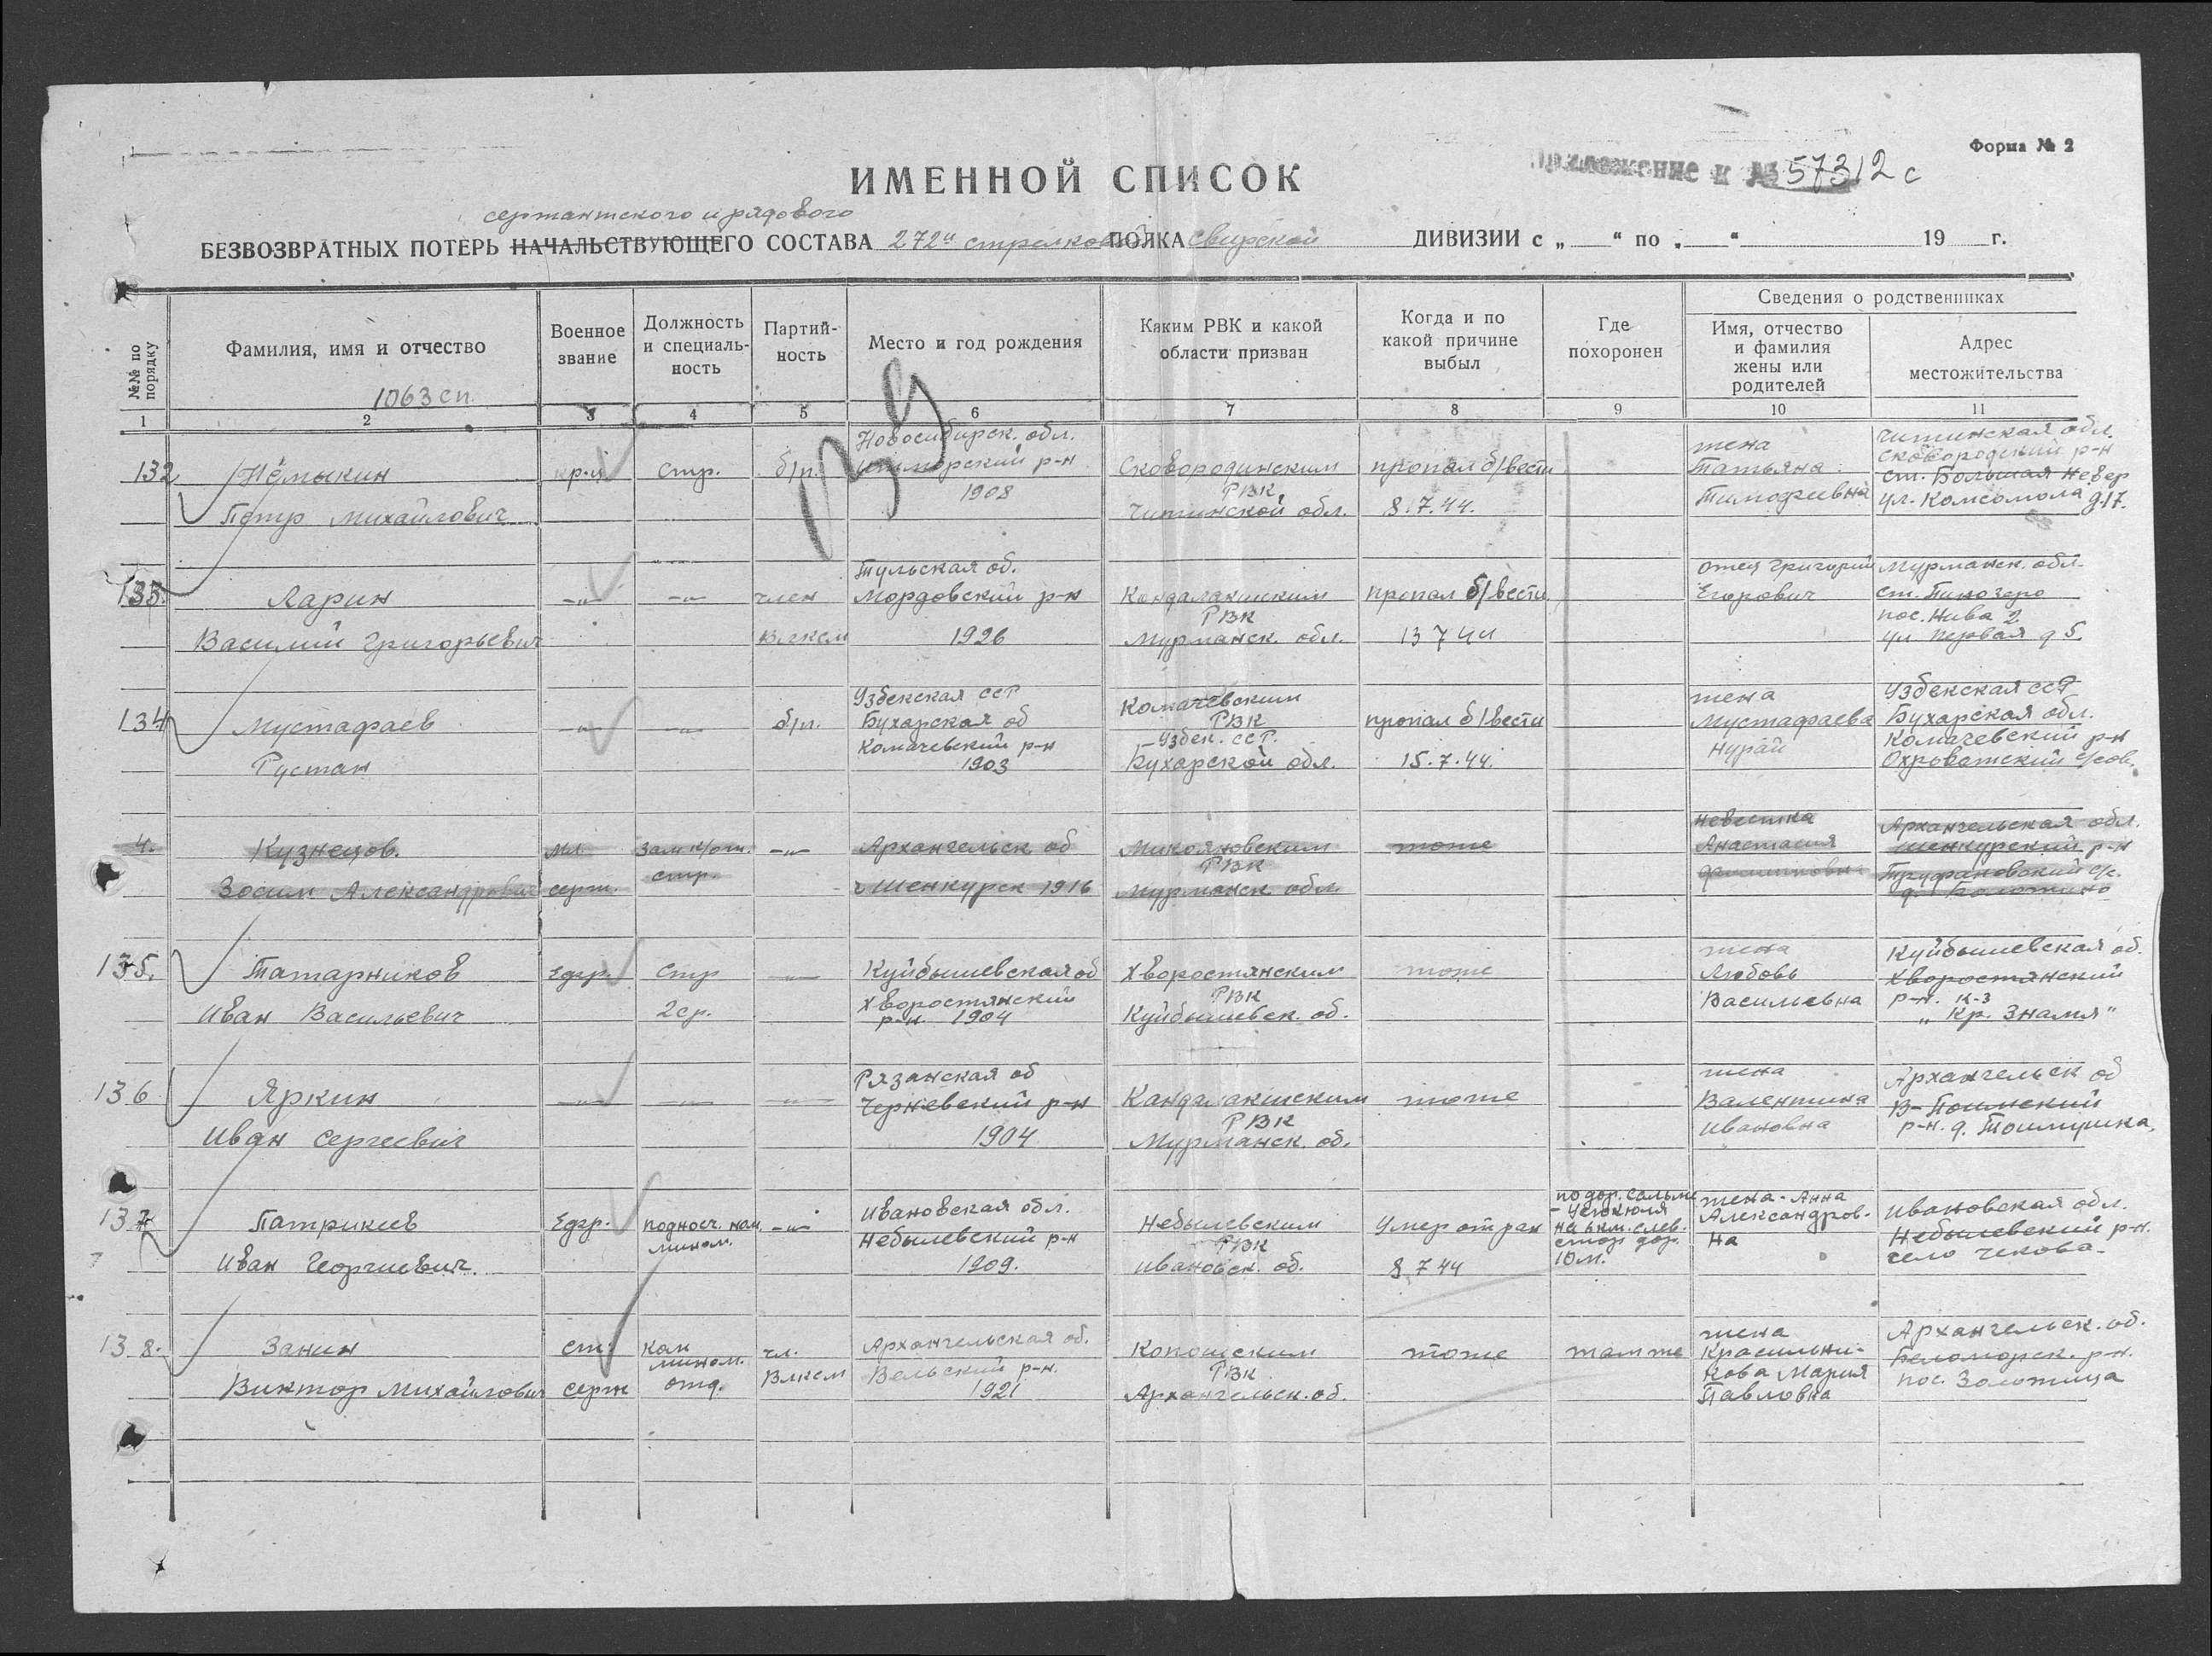 Форма № 2
Приложение к № 57312 с
ИМЕННОЙ СПИСОК
сержантского и рядового
БЕЗВОЗВРАТНЫХ ПОТЕРЬ НАЧАЛЬСТВУЮЩЕГО СОСТАВА 272й стрелковой ПОЛКА Свирской ДИВИЗИИ с „ “ по „ “ 19 г.
№№ по порядку
Фамилия, имя и отчество
1063 сп.
Военное звание
Должность и специальность
Партийность
Место и год рождения
Каким РВК и какой области призван
Когда и по какой причине выбыл
Где похоронен
Сведения о родственниках
Имя, отчество и фамилия жены или родителей
Адрес местожительства
1 2 3 4 5 6 7 8 9 10 11
139
132 Нёмыкин Петр Михайлович
кр-ц стр. б/п.
Новосибирск. обл. р-н 1908
Сковородинским РВК Читинской обл.
пропал б/вести 8.7.44.
жена Татьяна Тимофеевна
Читинская обл. Сковородский р-н ст. Большая Невер ул. Комсомола д 17.
133. Ларин Василий Григорьевич
-„- -„- член ВЛКСМ
Тульская об. Мордовский р-н 1926
Кандалакшским РВК Мурманск. обл.
пропал б/вести 13 7 44
отец Григорий Егорович
Мурманск. обл. ст. Пинозеро пос. Нива 2 ул Первая д 5.
134 Мустафаев Рустан
-„- -„- б/п.
Узбекская ССР Бухарская об Комачевский р-н 1903
Комачевским РВК Узбек. ССР. Бухарской обл.
пропал б/вести 15.7.44.
жена Мустафаева Нурай
Узбекская ССР Бухарская обл. Комачевский р-н Охрыватский с/сов.
4. Кузнецов. Зосим Александрович
мл серж. зам к/отд. стр. -„-
Архангельск об г Шенкурск 1916
Микояновским РВК Мурманск обл.
тоже
невестка Анастасия
Архангельская обл. Шенкурский р-н Труфановский с/с.
135. Татарников Иван Васильевич
Ефр. Стр 2 ср. -„-
Куйбышевская об Хворостянский р-н. 1904
Хворостянским РВК Куйбышевск. об.
тоже
жена Любовь Васильевна
Куйбышевская об. Хворостянский р-н. к-з „Кр. Знамя“
136 Яркин Иван Сергеевич
-„- -„- -„-
Рязанская об Черневский р-н 1904
Кандалакшским РВК Мурманск. об.
тоже
жена Валентина Ивановна
Архангельск об В-Тоимский р-н. д. Тоимушка.
137 Патрикеев Иван Георгиевич.
Ефр. подносч. мином. -„-
Ивановская обл. Небылевский р-н 1909.
Небылевским РВК Ивановск. об.
Умер от ран 8 7 44
по дор. на км. слев. стор дор. 10 м.
жена - Анна Александровна
Ивановская обл. Небылевский р-н. село Чекова-
138. Занин Виктор Михайлович
ст. серж Ком мином. отд. чл. ВЛКСМ
Архангельская об. Вельский р-н. 1921
Коношским РВК Архангельск. об.
тоже
там же
жена Красильникова Мария Павловна
Архангельск. об. Беломорск. р-н. пос. Золотица